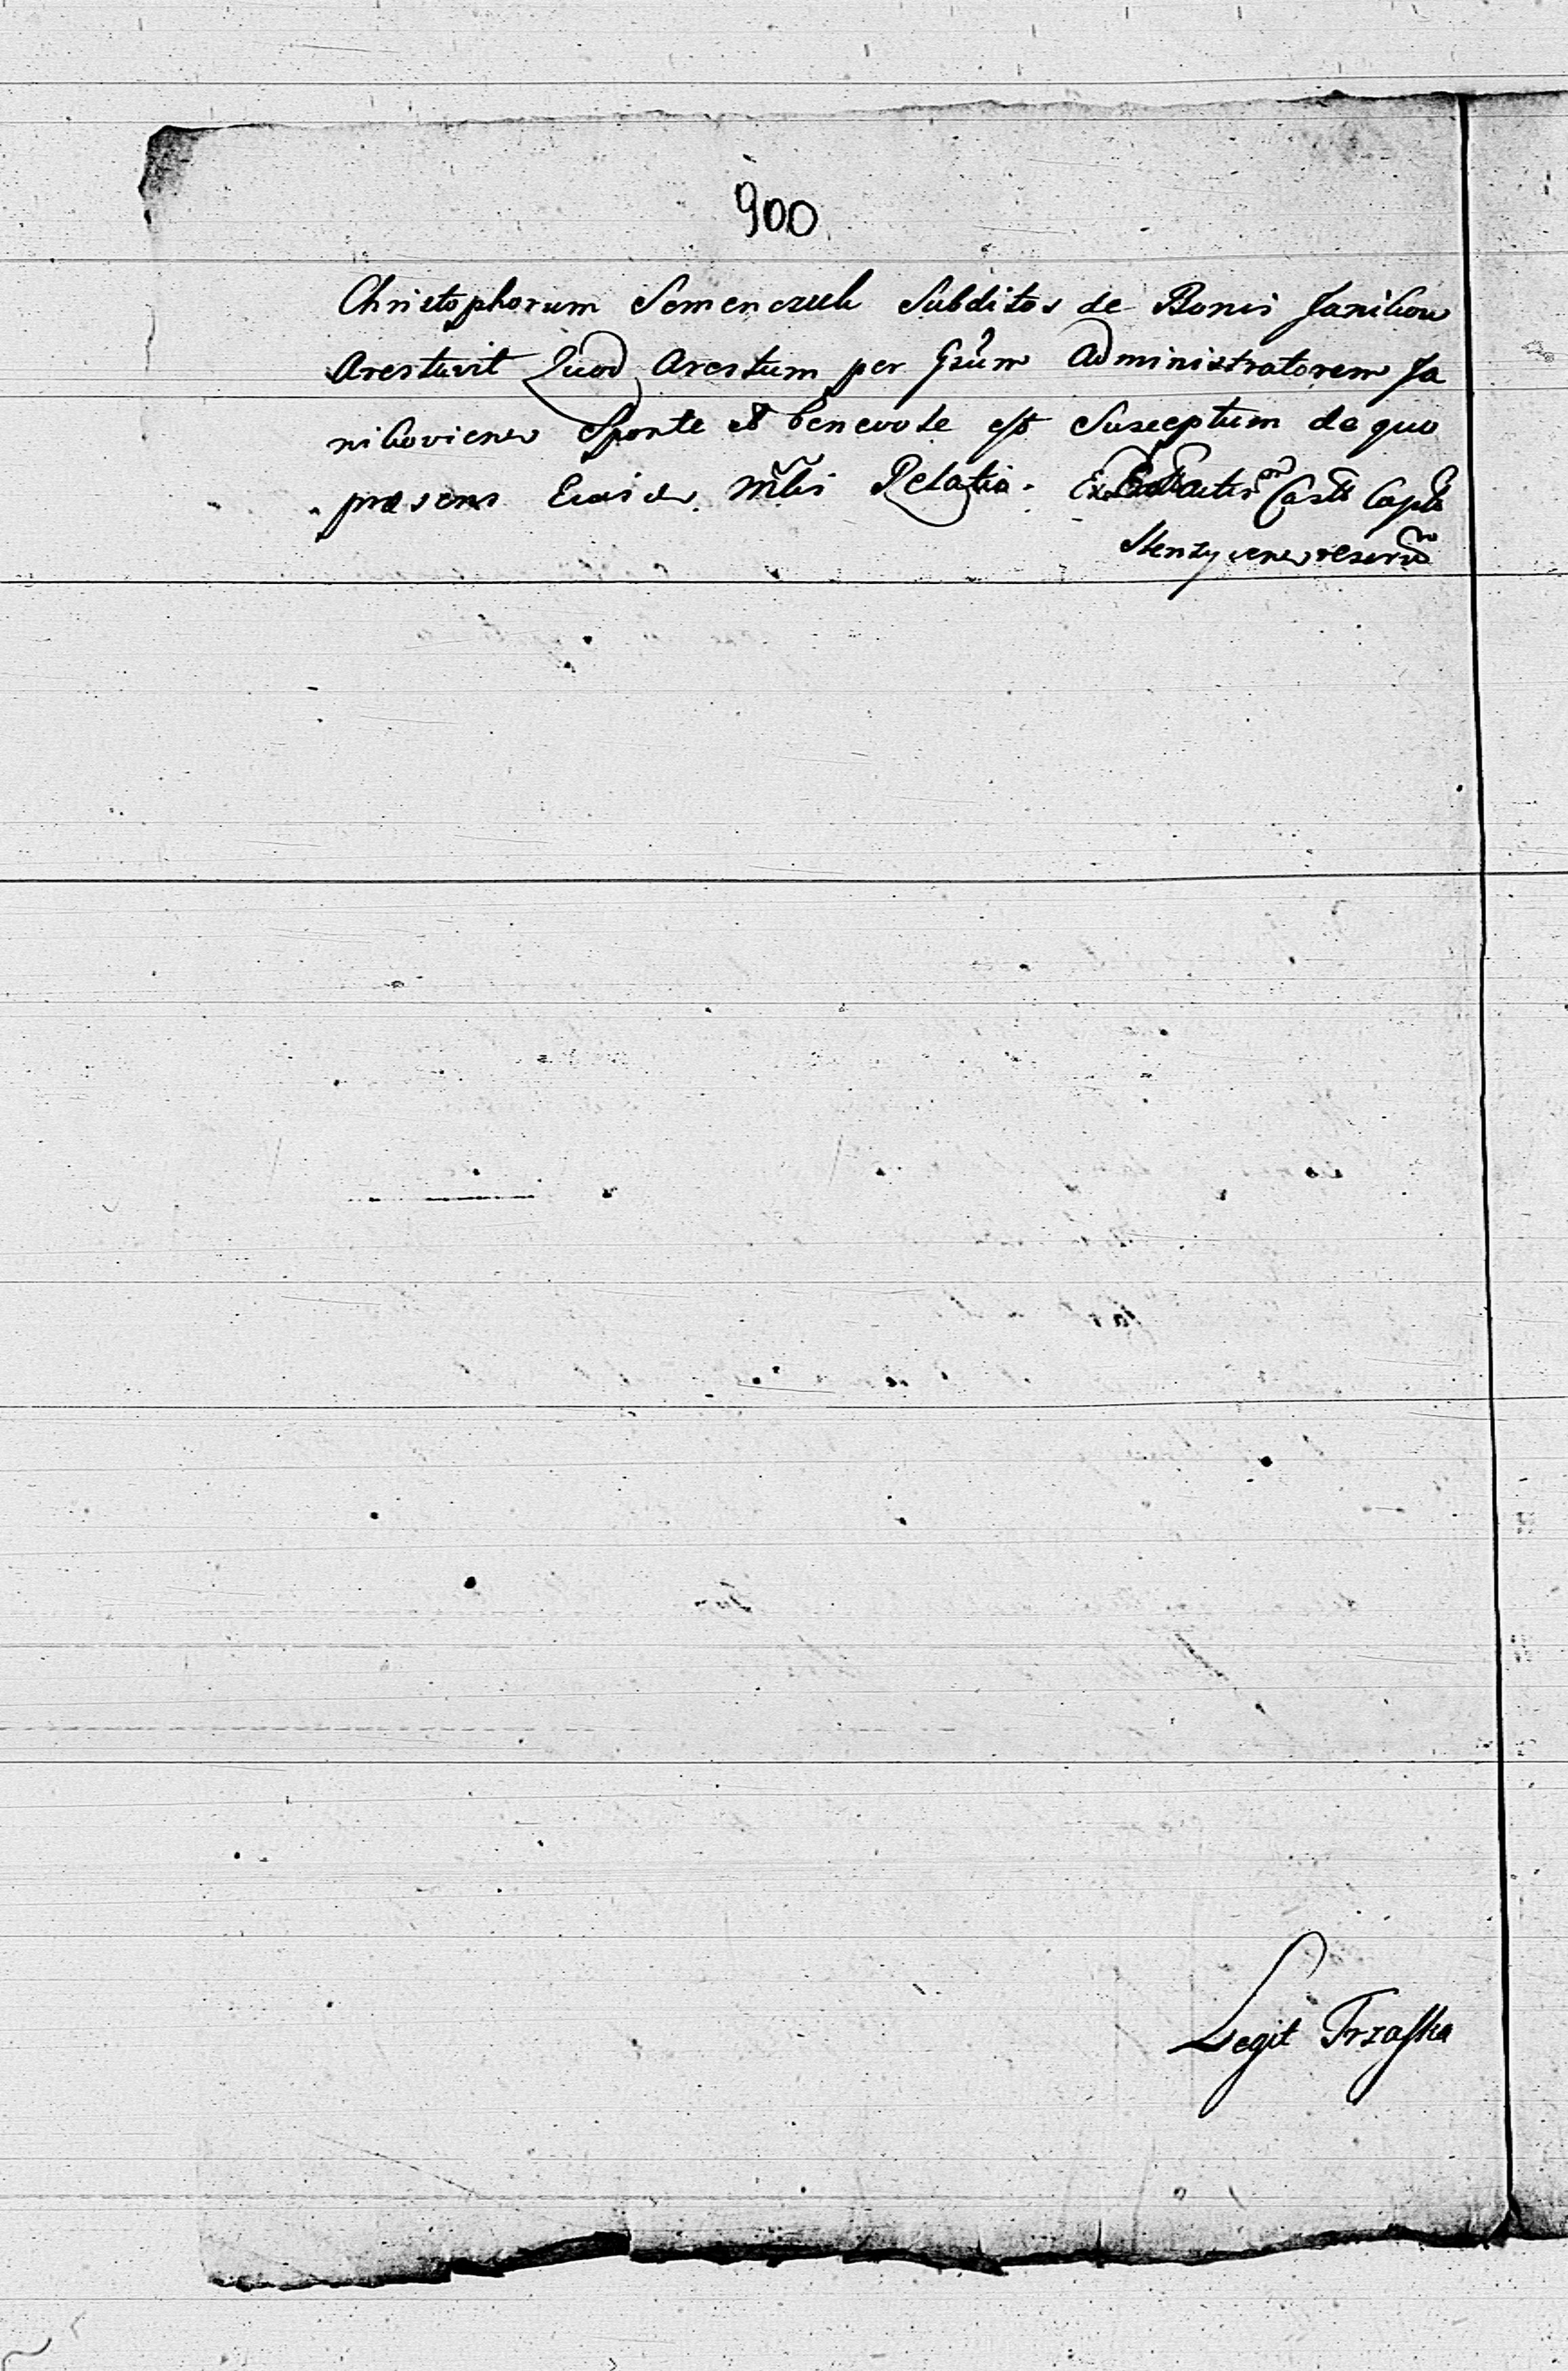 900
Christophorum Semenczuk Subditos de Bonis Janikow
Arestavit Quod Arestum per Grũm Administratorem Ja
nikoviens Sponte et benevole est Susceptum de quo
præsens Eiusd. Mñlis Relatio. Ex Actis Castr Capt
Stenzyciens
Legit Trzaska